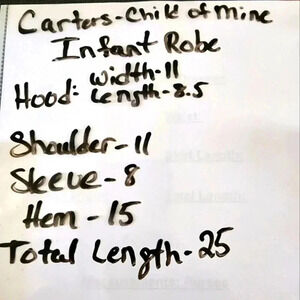 Carters-Child of Mine
Infant Robe
Hood: width-11
Length-8.5
Shoulder-11
Sleeve-8
Hem-15
Total Length-25